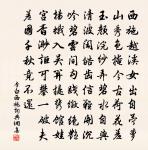 西施越溪女出自苧蘿
山秀色掩今古荷花羞
玉顏浣紗弄碧水自與
清波閒皓齒信難開沉
吟碧雲間勾踐徵絕艷
揚蛾入吳關提攜館娃
宮杳渺詎可攀一破夫
差國千秋竟不還
李白西施